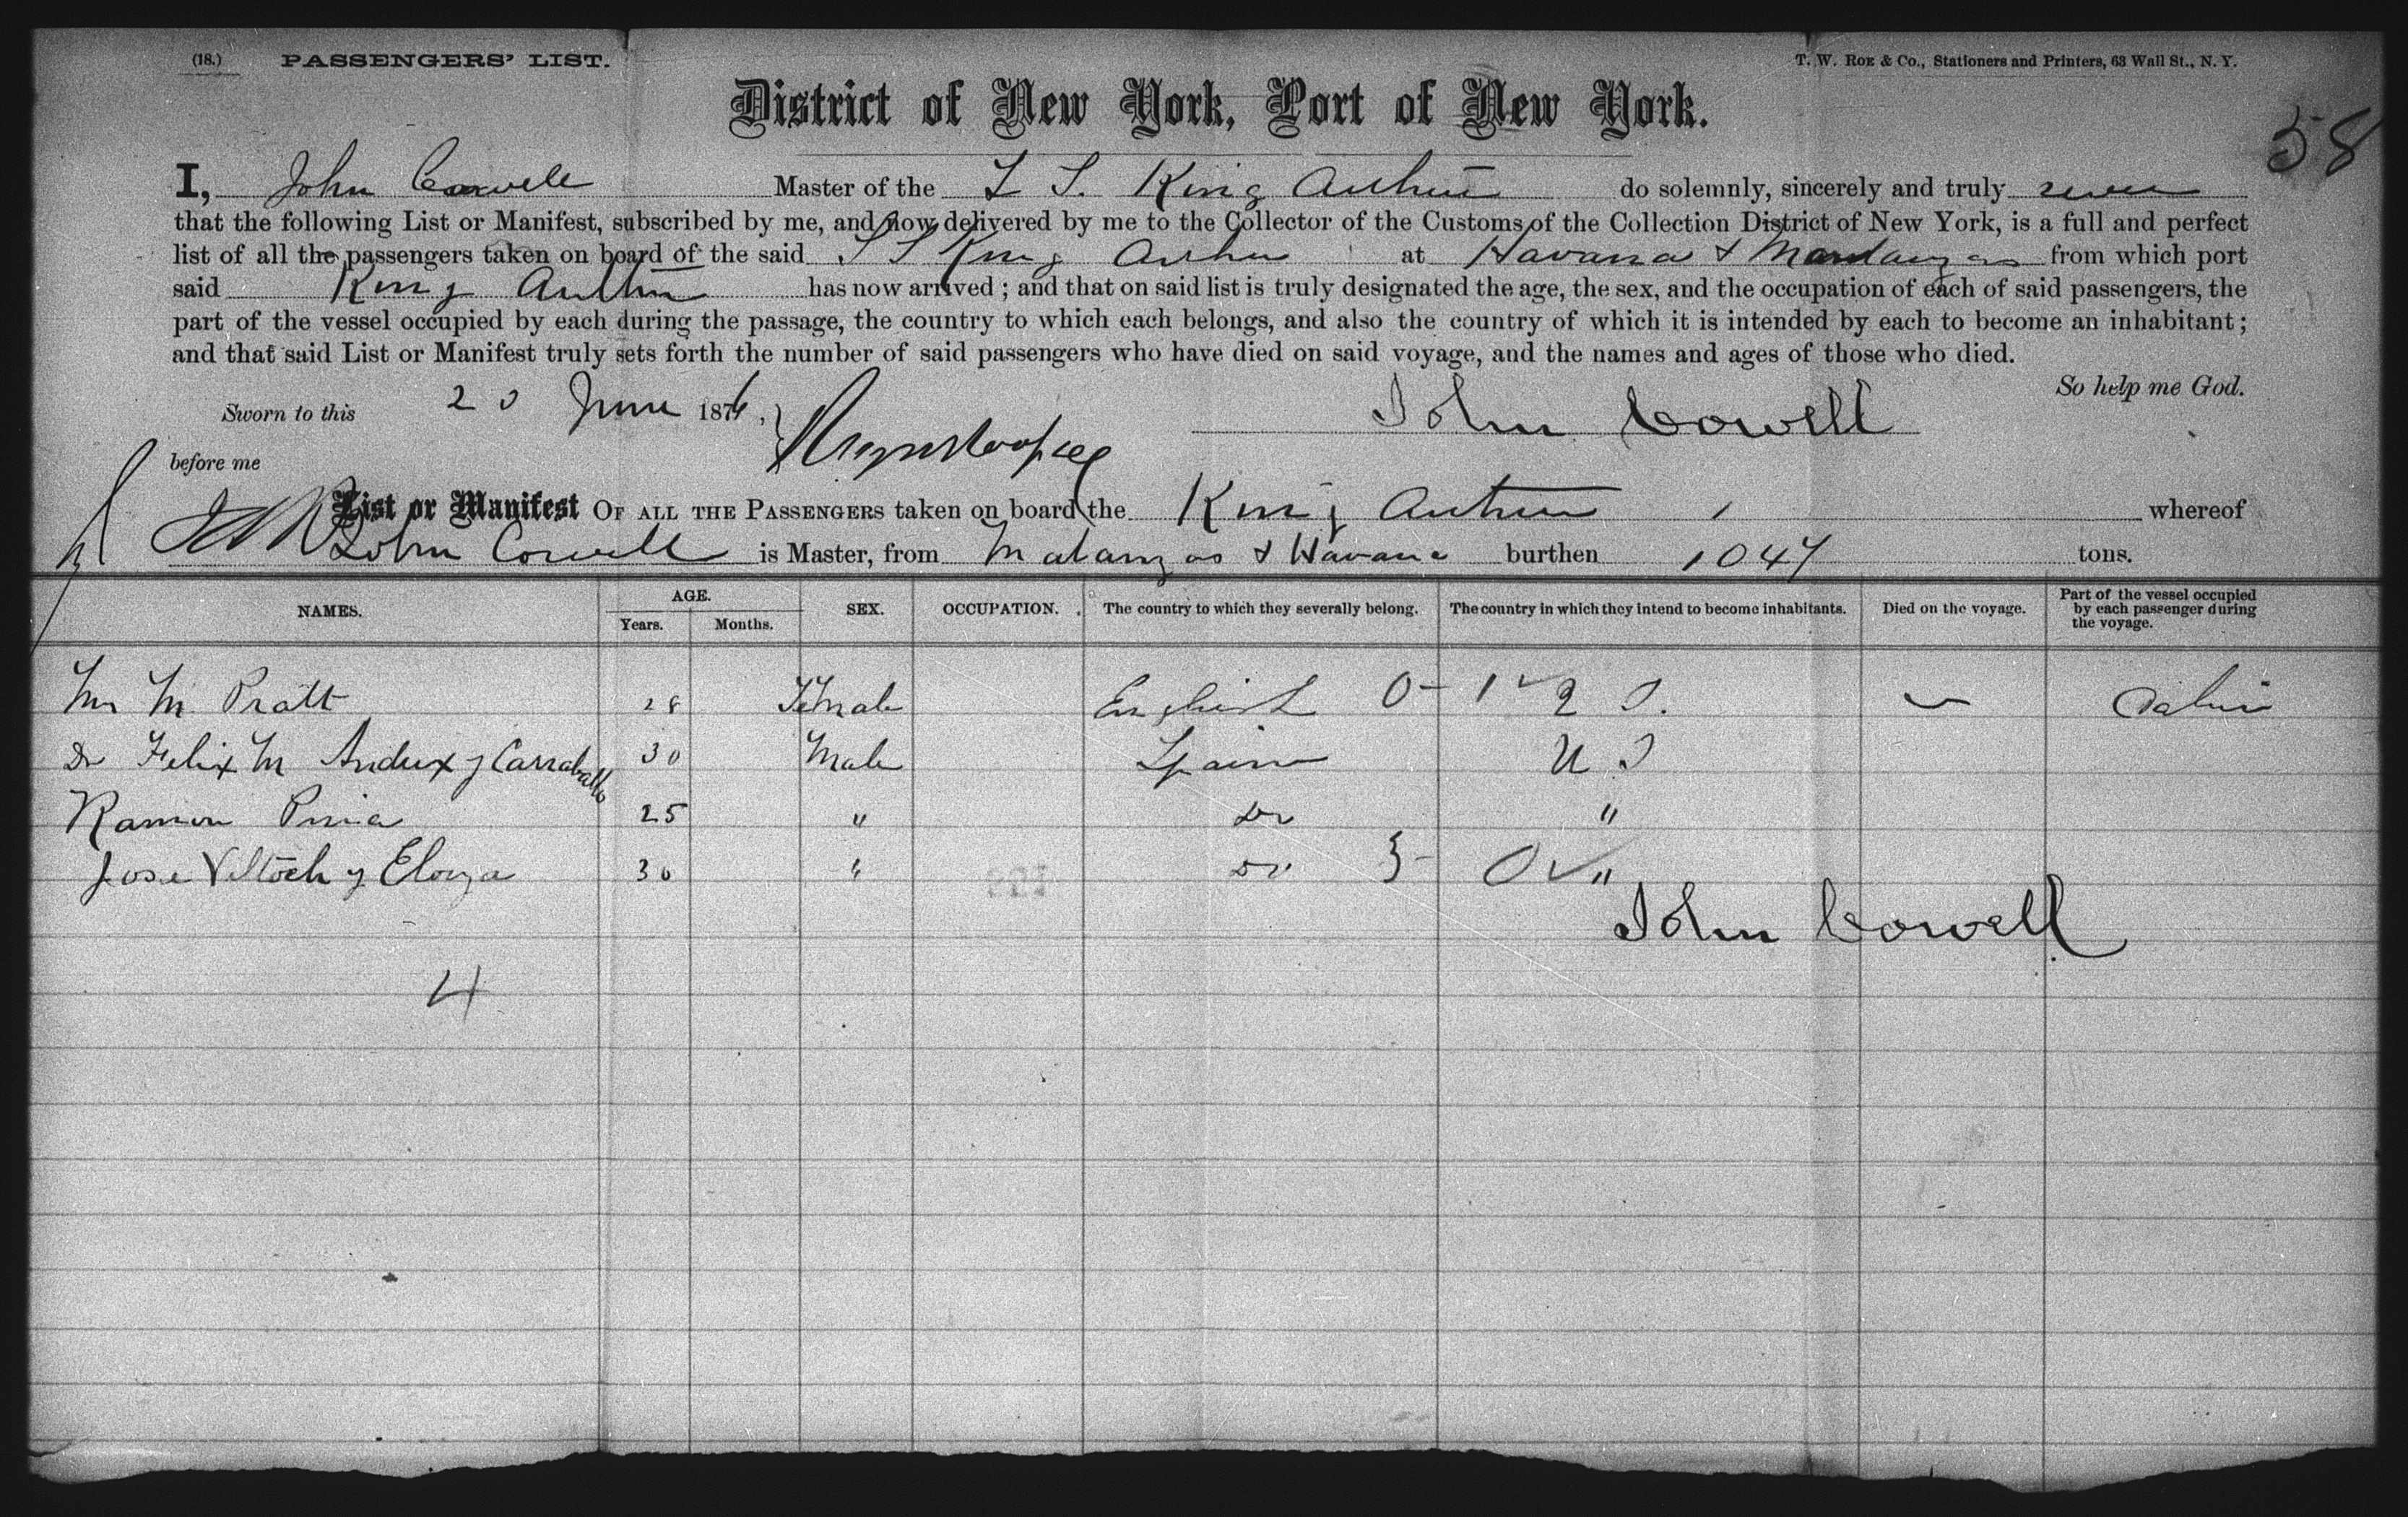 (18.) PASSENGERS' LIST. T. W. ROE & Co., Stationers and Printers, 63 Wall St., N. Y.
District of New York, Port of New York.
58
I, John Cowell Master of the S S. King Arthur do solemnly, sincerely and truly swear
that the following List or Manifest, subscribed by me, and now delivered by me to the Collector of the Customs of the Collection District of New York, is a full and perfect
list of all the passengers taken on board of the said S S King Arthur at Havana & Matanzas from which port
said King Arthur has now arrived; and that on said list is truly designated the age, the sex, and the occupation of each of said passengers, the
part of the vessel occupied by each during the passage, the country to which each belongs, and also the country of which it is intended by each to become an inhabitant;
and that said List or Manifest truly sets forth the number of said passengers who have died on said voyage, and the names and ages of those who died.
So help me God.
Sworn to this 20 June 1876, John Cowell
before me
List or Manifest OF ALL THE PASSENGERS taken on board the King Arthur whereof
John Cowell is Master, from Matanzas & Havana burthen 1047 tons.
NAMES. AGE. Years. Months. SEX. OCCUPATION. The country to which they severally belong. The country in which they intend to become inhabitants. Died on the voyage. Part of the vessel occupied by each passenger during the voyage.
M. Pratt 28 Female English 0- 1 U S. Cabin
Dr Felix M Andux y Carraballo 30 Male Spain U S
Ramon Pina 25 " Do "
Jose y 30 " Do 3- 0 "
John Cowell
4